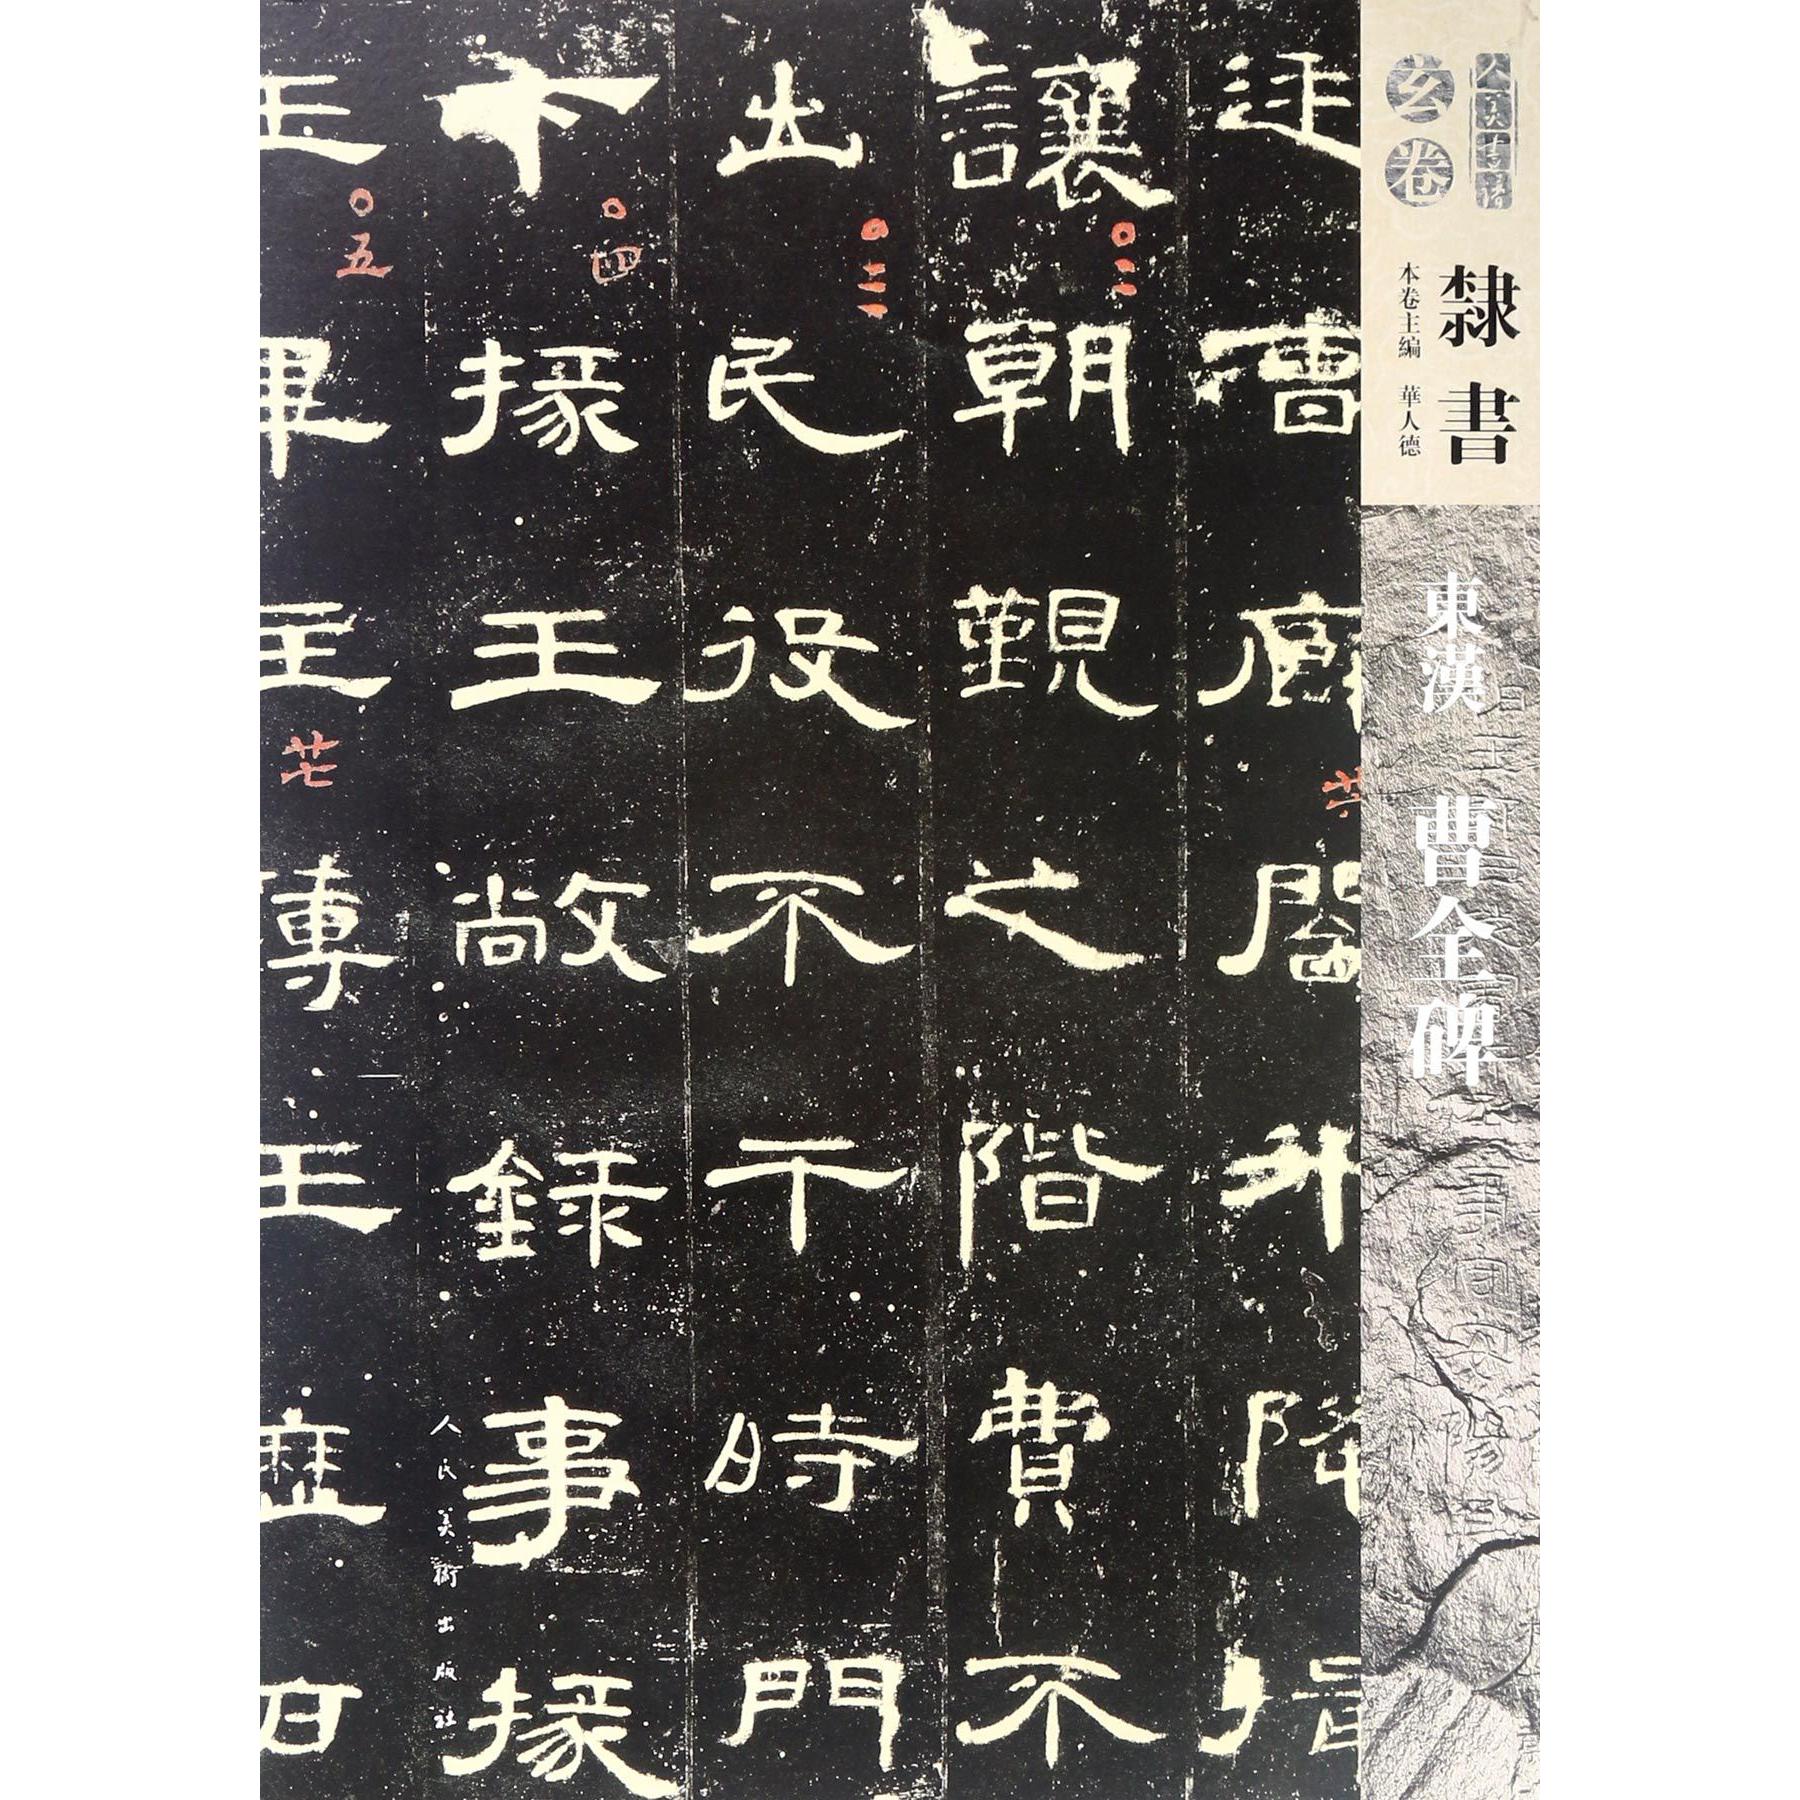 人美書譜
玄卷
隸書
本卷主編 華人德
東漢 曹全碑
廷曹廊閤升降揖
讓朝覲之階費不
出民役不干時門
下掾王敞錄事掾
王畢主
傳王歷
人民美術出版社
〇二
〇三
〇四
〇五
廿七